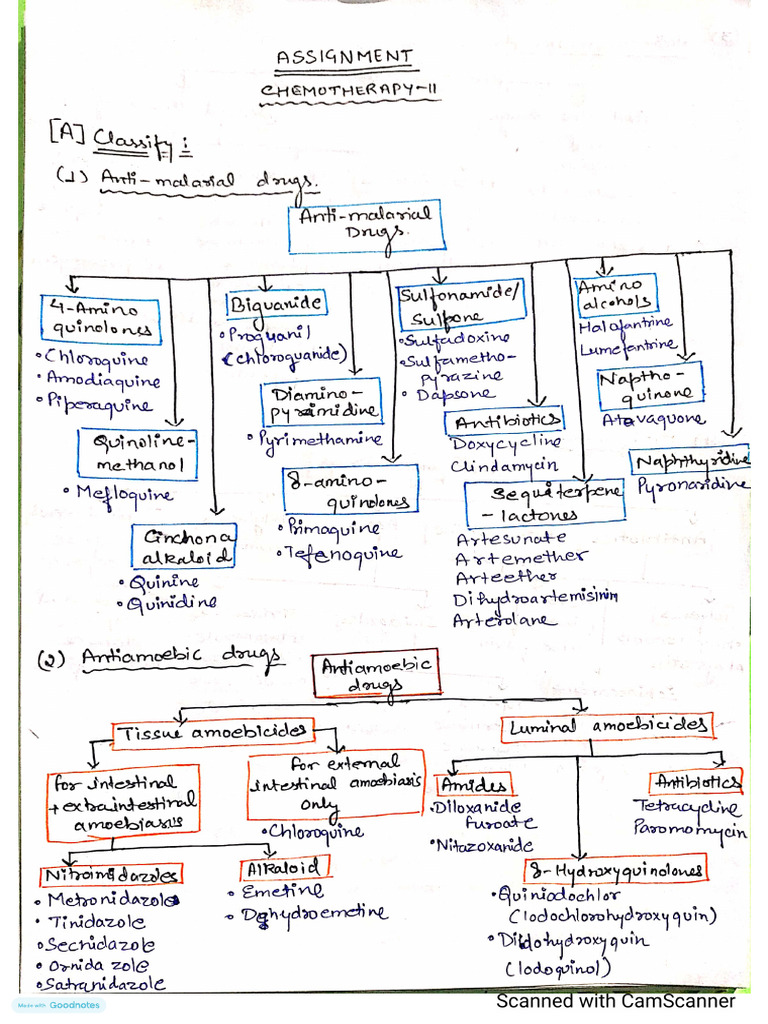 ASSIGNMENT
CHEMOTHERAPY-II
[A] Classify:
(1) Anti-malarial drugs.
Anti-malarial
Drugs.
4-Amino
quinolones
• Chloroquine
• Amodiaquine
• Piperaquine
Quinoline-
methanol
• Mefloquine
Cinchona
alkaloid
• Quinine
• Quinidine
Biguanide
• Proguanil
(chloroguanide)
Diamino-
pyrimidine
• Pyrimethamine
8-amino-
quinolones
• Primaquine
• Tefenoquine
Sulfonamide/
Sulpone
• Sulfadoxine
• Sulfametho-
pyrazine
• Dapsone
Antibiotics
Doxycycline
Clindamycin
Sequiterpene
-lactones
Artesunate
Artemether
Arteether
Dihydroartemisinin
Arterolane
Amino
alcohols
Halofantrine
Lumefantrine
Naptho-
quinone
Atovaquone
Naphthyridine
Pyronaridine
(2) Antiamoebic drugs
Antiamoebic
drugs
Tissue amoebicides
Luminal amoebicides
for intestinal
+ extraintestinal
amoebiasis
for external
intestinal amoebiasis
only
• Chloroquine
Nitroimidazoles
• Metronidazole
• Tinidazole
• Secnidazole
• Ornidazole
• Satranidazole
Alkaloid
• Emetine
• Dehydroemetine
Amides
• Diloxanide
furoate
• Nitazoxanide
Antibiotics
Tetracycline
Paromomycin
8-Hydroxyquinolones
• Quiniodochlor
(Iodochlorohydroxyquin)
• Diidohydroxyquin
(Iodoquinol)
Made with Goodnotes
Scanned with CamScanner